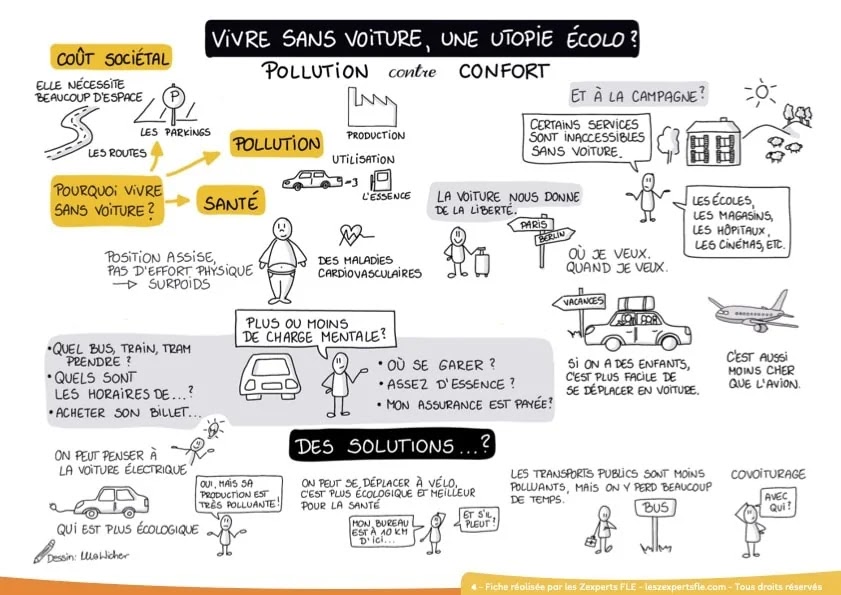 VIVRE SANS VOITURE, UNE UTOPIE ÉCOLO ?
POLLUTION contre CONFORT
COÛT SOCIÉTAL
ELLE NÉCESSITE
BEAUCOUP D'ESPACE
P
LES PARKINGS
LES ROUTES
POURQUOI VIVRE
SANS VOITURE ?
POLLUTION
SANTÉ
PRODUCTION
UTILISATION
L'ESSENCE
POSITION ASSISE,
PAS D'EFFORT PHYSIQUE
→ SURPOIDS
DES MALADIES
CARDIOVASCULAIRES
ET À LA CAMPAGNE ?
CERTAINS SERVICES
SONT INACCESSIBLES
SANS VOITURE.
LES ÉCOLES,
LES MAGASINS,
LES HÔPITAUX,
LES CINÉMAS, ETC.
LA VOITURE NOUS DONNE
DE LA LIBERTÉ.
PARIS
BERLIN
OÙ JE VEUX.
QUAND JE VEUX.
VACANCES
SI ON A DES ENFANTS,
C'EST PLUS FACILE DE
SE DÉPLACER EN VOITURE.
C'EST AUSSI
MOINS CHER
QUE L'AVION.
PLUS OU MOINS
DE CHARGE MENTALE ?
• QUEL BUS, TRAIN, TRAM
PRENDRE ?
• QUELS SONT
LES HORAIRES DE...?
• ACHETER SON BILLET...
• OÙ SE GARER ?
• ASSEZ D'ESSENCE ?
• MON ASSURANCE EST PAYÉE?
DES SOLUTIONS...?
ON PEUT PENSER À
LA VOITURE ÉLECTRIQUE
QUI EST PLUS ÉCOLOGIQUE
OUI, MAIS SA
PRODUCTION EST
TRÈS POLLUANTE!
ON PEUT SE DÉPLACER À VÉLO,
C'EST PLUS ÉCOLOGIQUE ET MEILLEUR
POUR LA SANTÉ
MON BUREAU
EST À 10 KM
D'ICI...
ET S'IL
PLEUT!
LES TRANSPORTS PUBLICS SONT MOINS
POLLUANTS, MAIS ON Y PERD BEAUCOUP
DE TEMPS.
BUS
COVOITURAGE
AVEC
QUI?
Dessin:
4 - Fiche réalisée par les Zexperts FLE - leszexpertsfle.com - Tous droits réservés